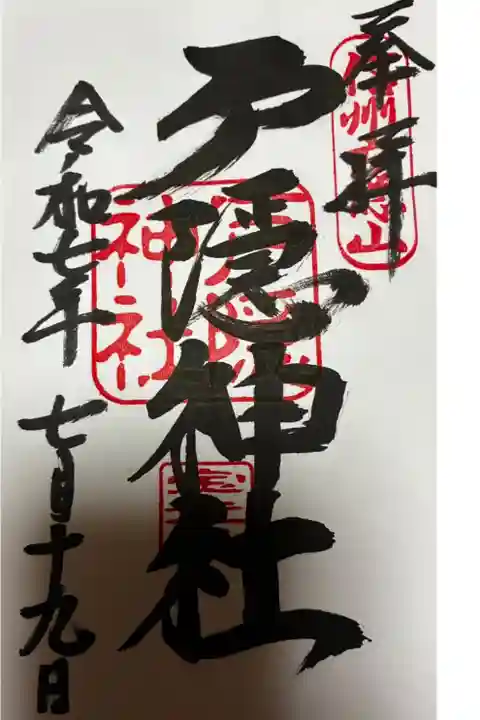 奉拝
信州戸隠山
戸隠神社
戸隠
神社
令和七年
七月十九日